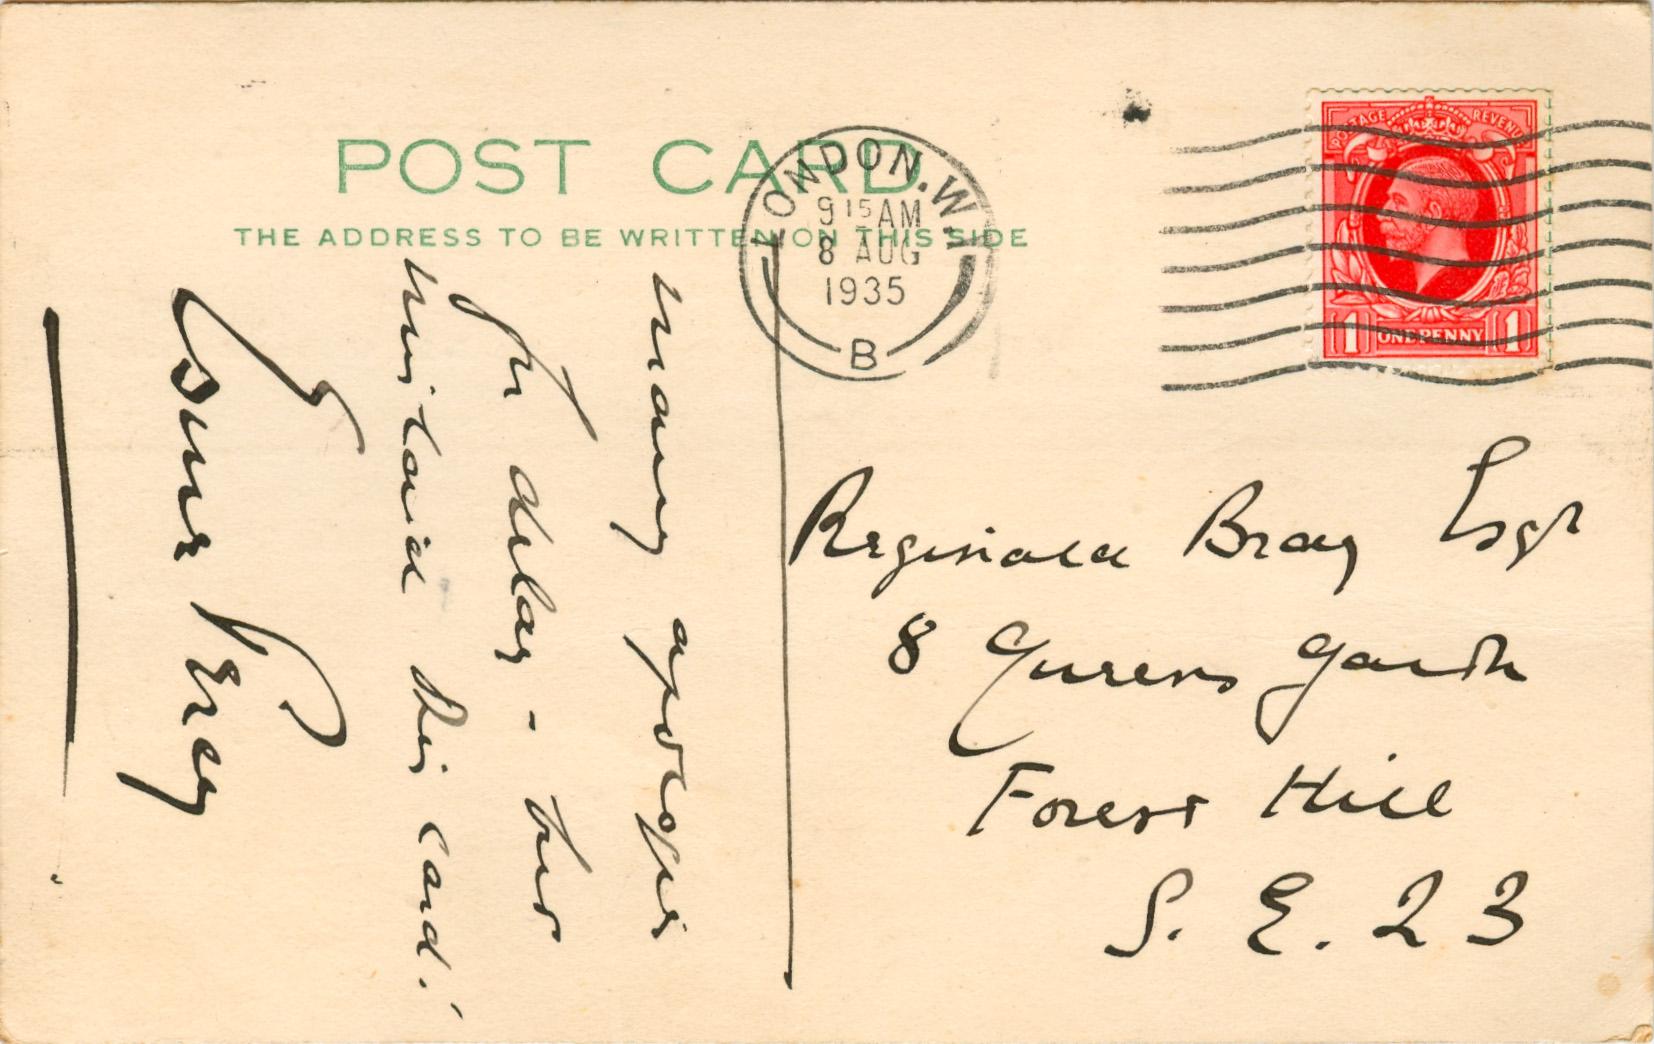 POST CARD
THE ADDRESS TO BE WRITTEN ON THIS SIDE
LONDON. W.1
9 15 AM
8 AUG
1935
B
POSTAGE REVENUE
1 ONE PENNY 1
Many apologies
for delay -
mislaid this card!
Esme Percy
Reginald Bray Esqr
8 Queens Garth
Forest Hill
S. E. 23